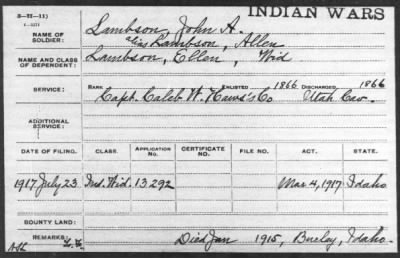 3-II-11)
INDIAN WARS
NAME OF SOLDIER: Lambson, John A.
alias Lambson, Allen
NAME AND CLASS OF DEPENDENT: Lambson, Ellen, Wid
SERVICE: RANK ENLISTED 1866 DISCHARGED 1866
Capt. Caleb W. Haws's Co Utah Cav.
ADDITIONAL SERVICE:
DATE OF FILING. CLASS. APPLICATION No. CERTIFICATE NO. FILE NO. ACT. STATE.
1917 July 23 Ind. Wid. 13292 Mar 4, 1917 Idaho
BOUNTY LAND:
REMARKS: Died Jan 1915, Burley, Idaho.